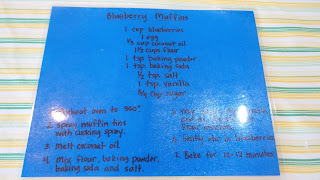 Blueberry Muffins
1 cup blueberries
1 egg
1/3 cup coconut oil
1 1/2 cups flour
1 tsp. baking powder
1 tsp. baking soda
1/2 tsp. salt
1 tsp. vanilla
3/4 cup sugar
oven to 350°
2. Spray muffin tins
with cooking spray.
3. Melt coconut oil.
4. Mix flour, baking powder,
baking soda and salt.
5. Mix
6. in blueberries
7. Bake for minutes